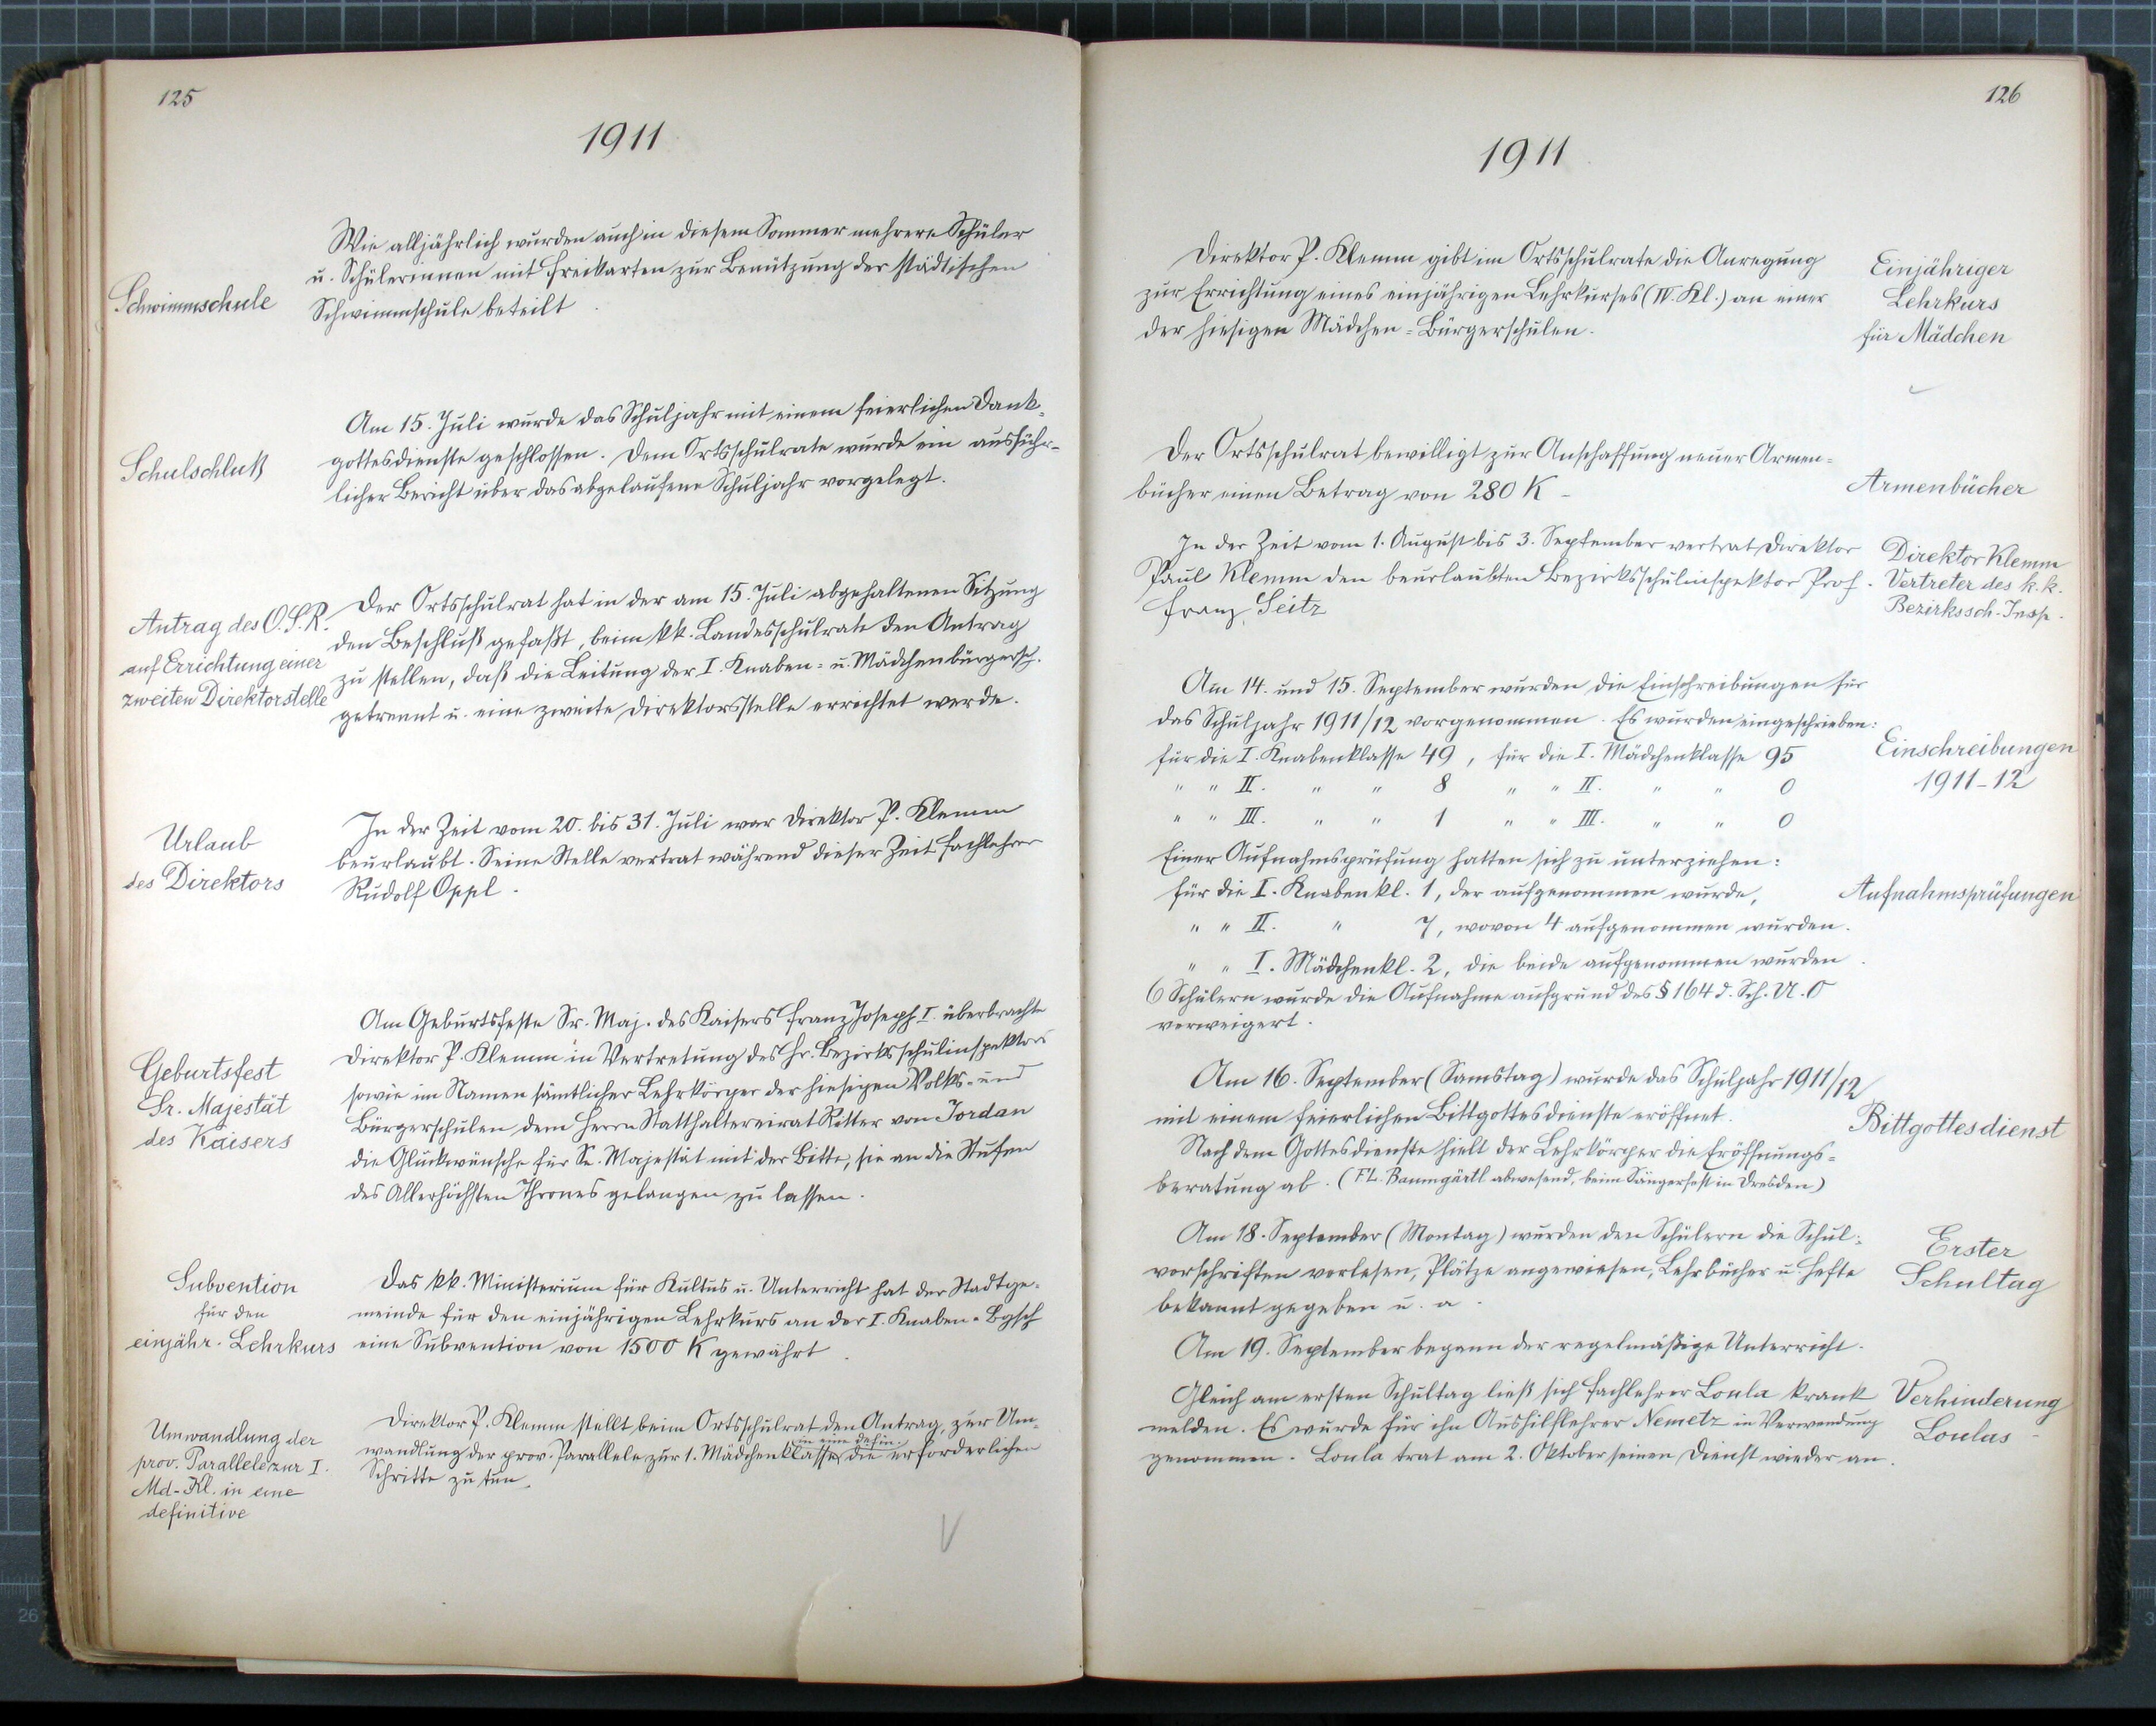 125
1911
Schwimmschule
Wie alljährlich wurden auch in diesem Sommer mehrere Schüler
u. Schülerinnen mit Freikarten zur Benützung der städtischen
Schwimmschule beteilt.
Schulschluß
Am 15. Juli wurde das Schuljahr mit einem feierlichen Dank-
gottesdienste geschlossen. Dem Ortsschulrate wurde ein ausführ-
licher Bericht über das abgelaufene Schuljahr vorgelegt.
Antrag des O.S.R.
auf Errichtung einer
zweiten Direktorstelle
Der Ortsschulrat hat in der am 15. Juli abgehaltenen Sitzung
den Beschluß gefaßt, beim kk. Landesschulrate den Antrag
zu stellen, daß die Leitung der I. Knaben- u. Mädchenbürgersch.
getrennt u. eine zweite Direktorsstelle errichtet werde.
Urlaub
des Direktors
In der Zeit vom 20. bis 31. Juli war Direktor P. Klemm
beurlaubt. Seine Stelle vertrat während dieser Zeit Fachlehrer
Rudolf Oppl.
Geburtsfest
Sr. Majestät
des Kaisers
Am Geburtsfeste Sr. Maj. des Kaisers Franz Joseph I. überbrachte
Direktor P. Klemm in Vertretung des Hr. Bezirksschulinspektors
sowie im Namen sämtlicher Lehrkörper der hiesigen Volks- und
Bürgerschulen dem Herrn Statthaltereirat Ritter von Jordan
die Glückwünsche für Se. Majestät mit der Bitte, sie an die Stufen
des Allerhöchsten Thrones gelangen zu lassen.
Subvention
für den
einjähr. Lehrkurs
Das kk. Ministerium für Kultus u. Unterricht hat der Stadtge-
meinde für den einjährigen Lehrkurs an der I. Knaben-Bgsch
eine Subvention von 1500 K gewährt.
Umwandlung der
prov. Parallele zur I.
Md-Kl. in eine
definitive
Direktor P. Klemm stellt beim Ortsschulrat den Antrag, zur Um-
in eine defin.
wandlung der prov. Parallele zur 1. Mädchenklasse die erforderlichen
Schritte zu tun.
126
1911
Direktor P. Klemm gibt im Ortsschulrate die Anregung
zur Errichtung eines einjährigen Lehrkurses (IV. Kl.) an einer
der hiesigen Mädchen-Bürgerschulen.
Einjähriger
Lehrkurs
für Mädchen
Der Ortsschulrat bewilligt zur Anschaffung neuer Armen-
bücher einen Betrag von 280 K -
Armenbücher
In der Zeit vom 1. August bis 3. September vertrat Direktor
Paul Klemm den beurlaubten Bezirksschulinspektor Prof.
Franz Seitz
Direktor Klemm
Vertreter des k.k.
Bezirkssch.-Insp.
Am 14. und 15. September wurden die Einschreibungen für
das Schuljahr 1911/12 vorgenommen. Es wurden eingeschrieben:
für die I. Knabenklasse 49, für die I. Mädchenklasse 95
" " II. " " 8 " " II. " " 0
" " III. " " 1 " " III. " " 0
Einschreibungen
1911-12
Einer Aufnahmsprüfung hatten sich zu unterziehen:
für die I. Knabenkl. 1, der aufgenommen wurde,
" " II. " 7, wovon 4 aufgenommen wurden.
" " I. Mädchenkl. 2, die beide aufgenommen wurden.
6 Schülern wurde die Aufnahme aufgrund des § 164 d. Sch. U. O
verweigert.
Aufnahmsprüfungen
Am 16. September (Samstag) wurde das Schuljahr 1911/12
mit einem feierlichen Bittgottesdienste eröffnet.
Bittgottesdienst
Nach dem Gottesdienste hielt der Lehrkörper die Eröffnungs-
beratung ab. (FL. Baumgärtl abwesend, beim Sängerfest in Dresden)
Am 18. September (Montag) wurden den Schülern die Schul-
vorschriften verlesen, Plätze angewiesen, Lehrbücher u. Hefte
bekannt gegeben u. a.
Erster
Schultag
Am 19. September begann der regelmäßige Unterricht.
Gleich am ersten Schultag ließ sich Fachlehrer Loula krank
melden. Es wurde für ihn Aushilfslehrer Nemetz in Verwendung
genommen. Loula trat am 2. Oktober seinen Dienst wieder an.
Verhinderung
Loulas
26